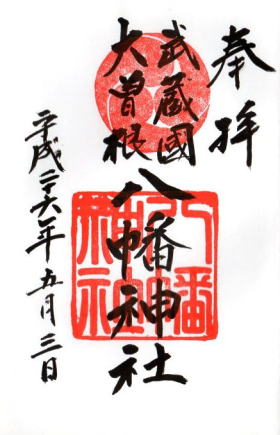 奉拝
武蔵國
大曽根
八幡神社
平成二十六年五月三日
八幡神社